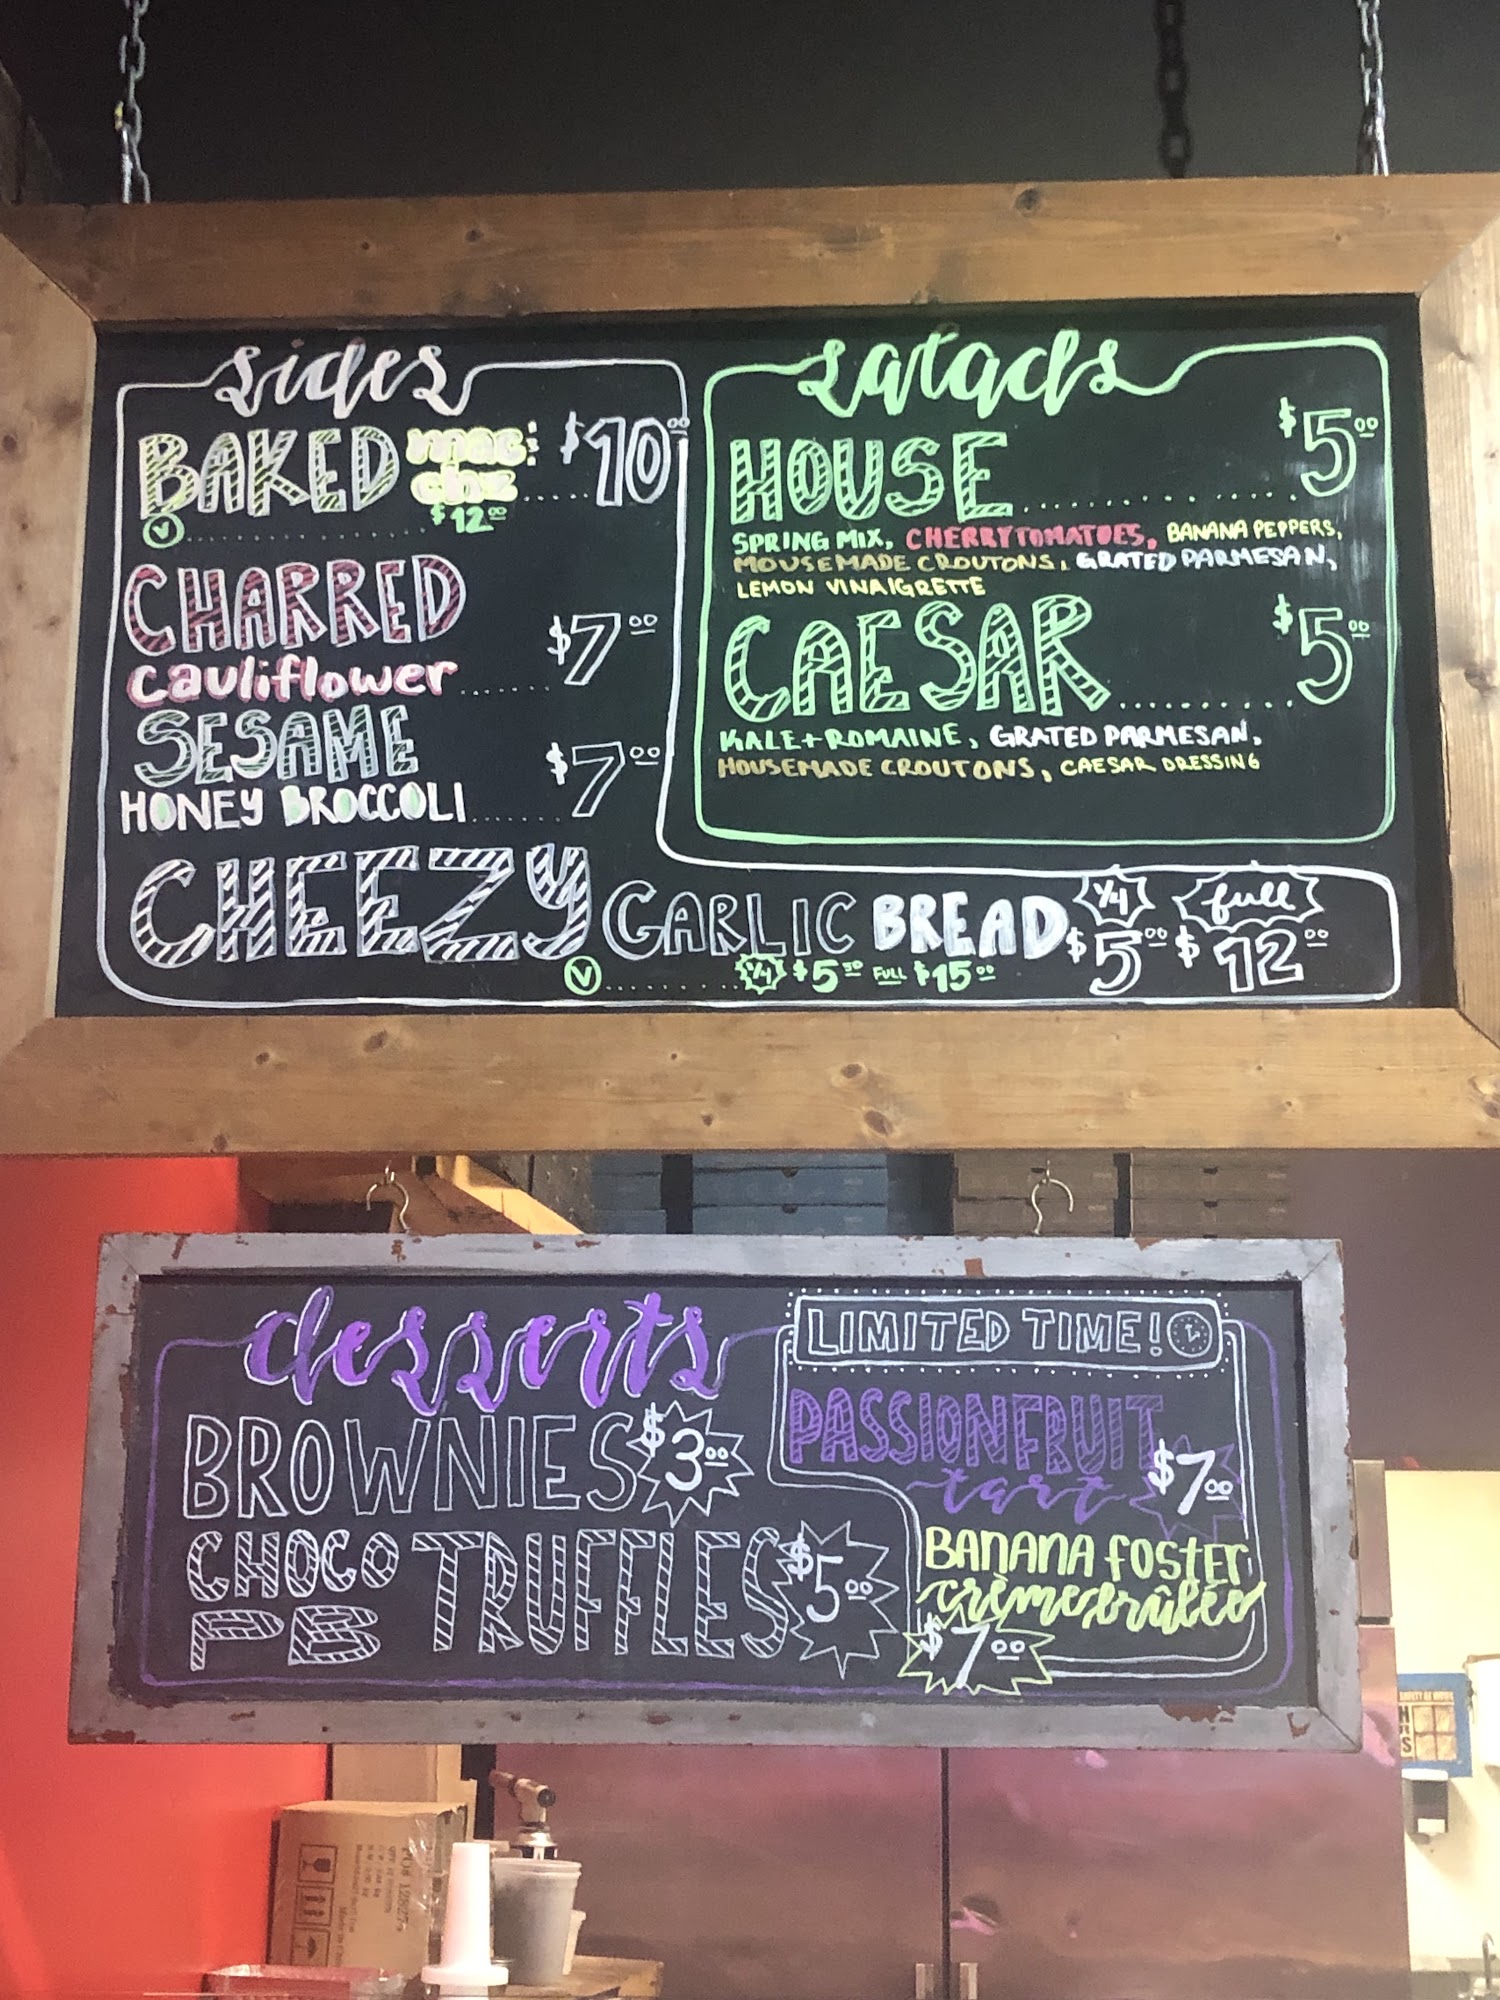 sides
BAKED mac chz $10.00
V $12.00
CHARRED
cauliflower $7.00
SESAME
HONEY BROCCOLI $7.00
CHEEZY GARLIC BREAD 1/4 $5.00 full $12.00
V 1/4 $5.50 FULL $15.00
salads
HOUSE $5.00
SPRING MIX, CHERRY TOMATOES, BANANA PEPPERS,
HOUSEMADE CROUTONS, GRATED PARMESAN,
LEMON VINAIGRETTE
CAESAR $5.00
KALE + ROMAINE, GRATED PARMESAN,
HOUSEMADE CROUTONS, CAESAR DRESSING
desserts
BROWNIES $3.00
CHOCO PB TRUFFLES $5.00
LIMITED TIME!
PASSIONFRUIT
tart $7.00
BANANA FOSTER
crème brûlée
$7.00